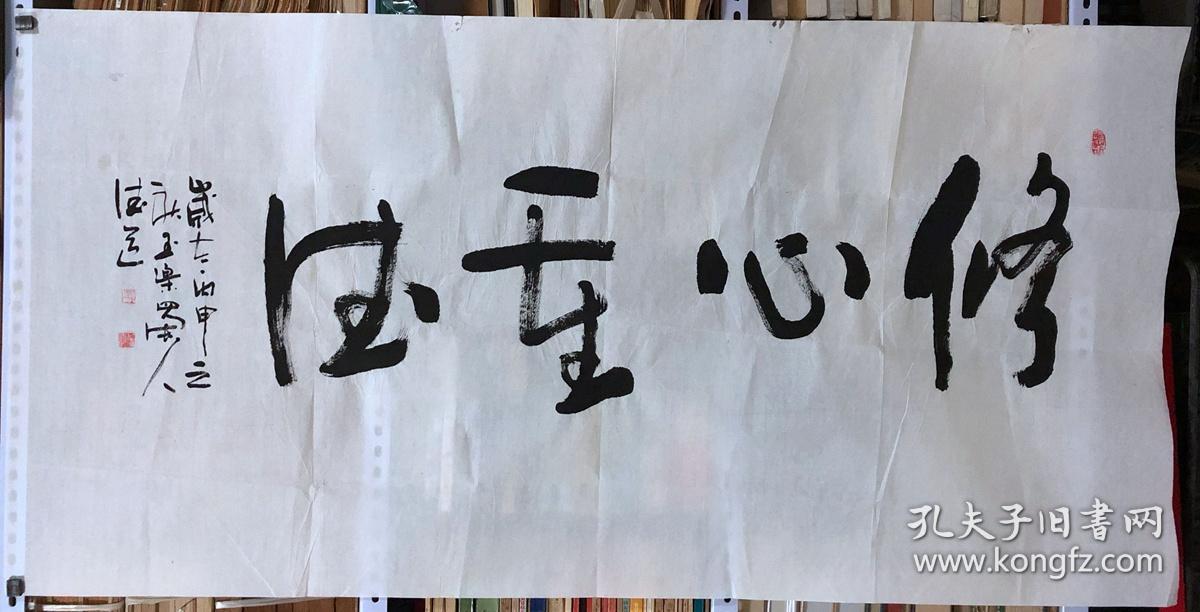 修心重德
歲在丙申之
秋玉梁蜀人
德道
孔夫子旧書网
www.kongfz.com